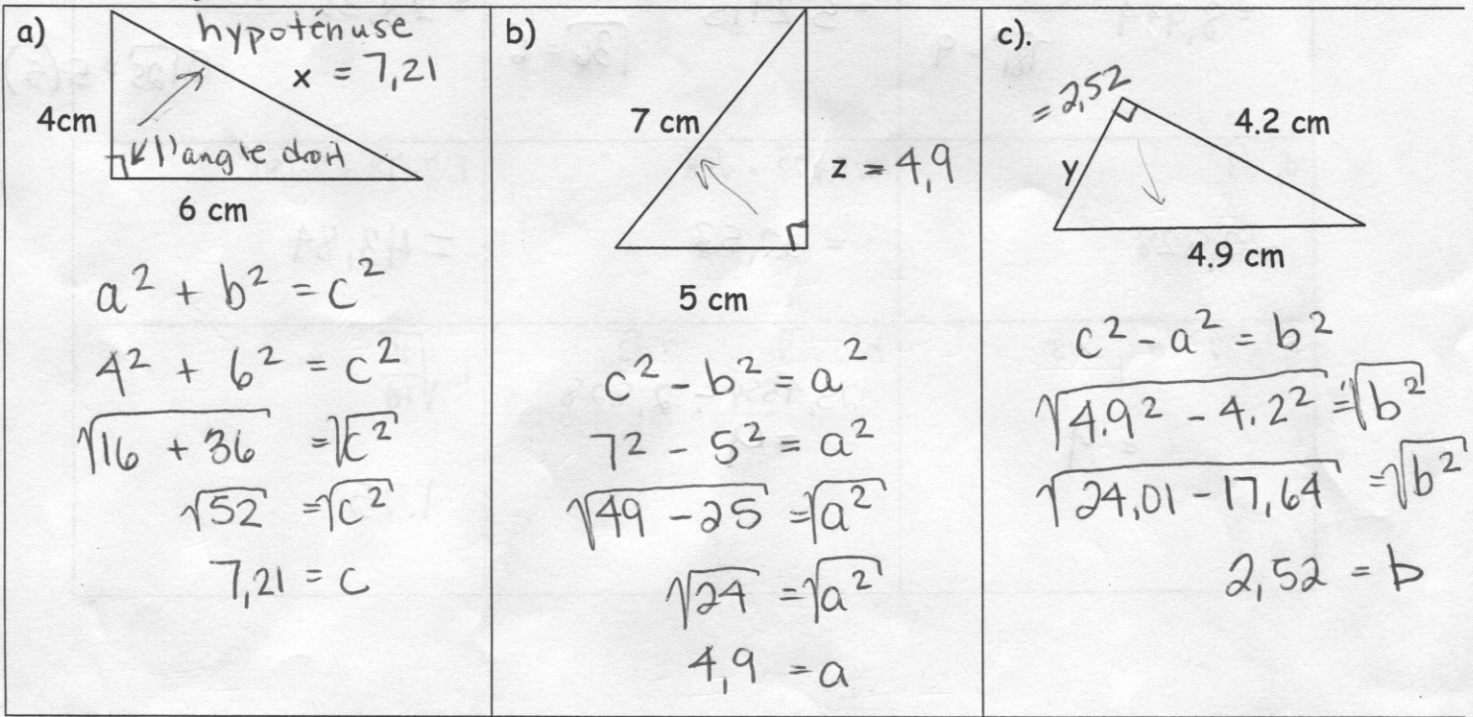 a)
hypoténuse
x = 7,21
4cm
l'angle droit
6 cm
a² + b² = c²
4² + 6² = c²
√16 + 36 = √c²
√52 = √c²
7,21 = c
b)
7 cm
z = 4,9
5 cm
c² - b² = a²
7² - 5² = a²
√49 - 25 = √a²
√24 = √a²
4,9 = a
c).
= 2,52
4.2 cm
y
4.9 cm
c² - a² = b²
√4.9² - 4.2² = √b²
√24,01 - 17,64 = √b²
2,52 = b